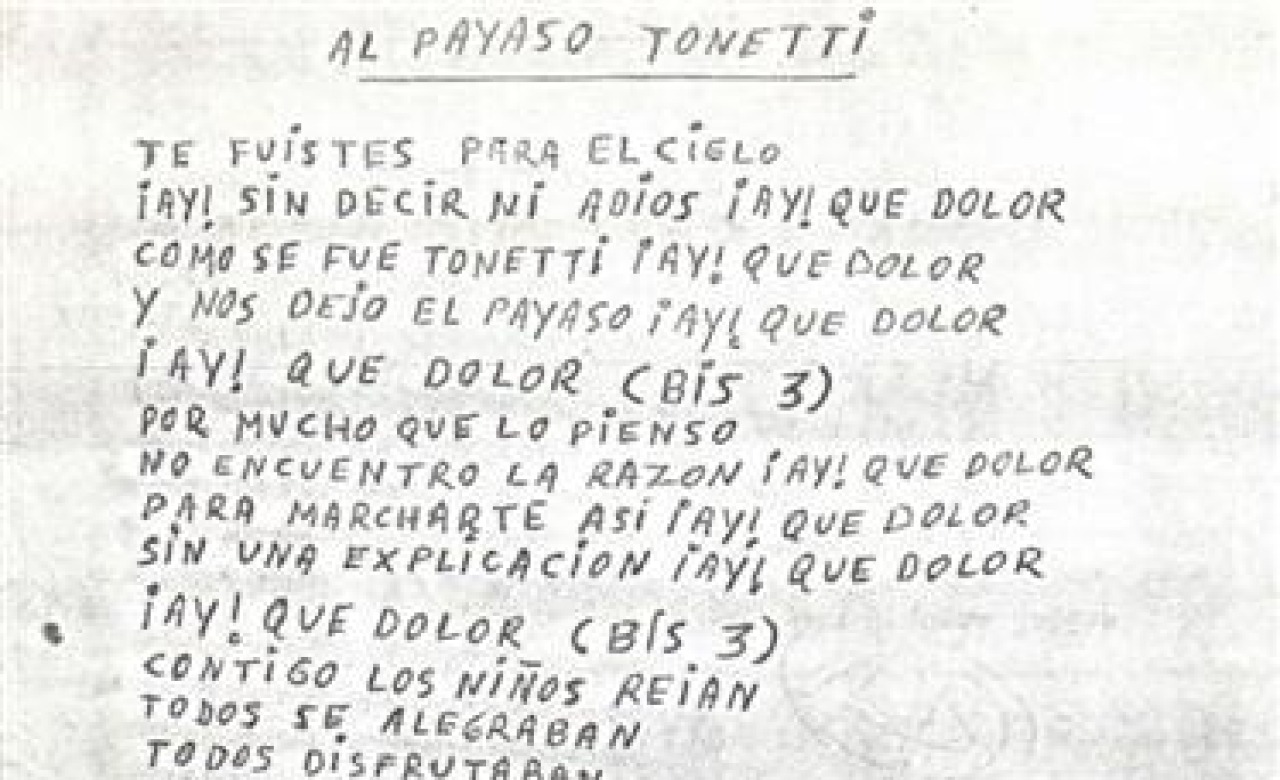 AL PAYASO TONETTI
TE FUISTES PARA EL CIELO
¡AY! SIN DECIR NI ADIOS ¡AY! QUE DOLOR
COMO SE FUE TONETTI ¡AY! QUE DOLOR
Y NOS DEJO EL PAYASO ¡AY! QUE DOLOR
¡AY! QUE DOLOR (BIS 3)
POR MUCHO QUE LO PIENSO
NO ENCUENTRO LA RAZON ¡AY! QUE DOLOR
PARA MARCHARTE ASI ¡AY! QUE DOLOR
SIN UNA EXPLICACION ¡AY! QUE DOLOR
¡AY! QUE DOLOR (BIS 3)
CONTIGO LOS NIÑOS REIAN
TODOS SE ALEGRABAN
TODOS DISFRUTABAN